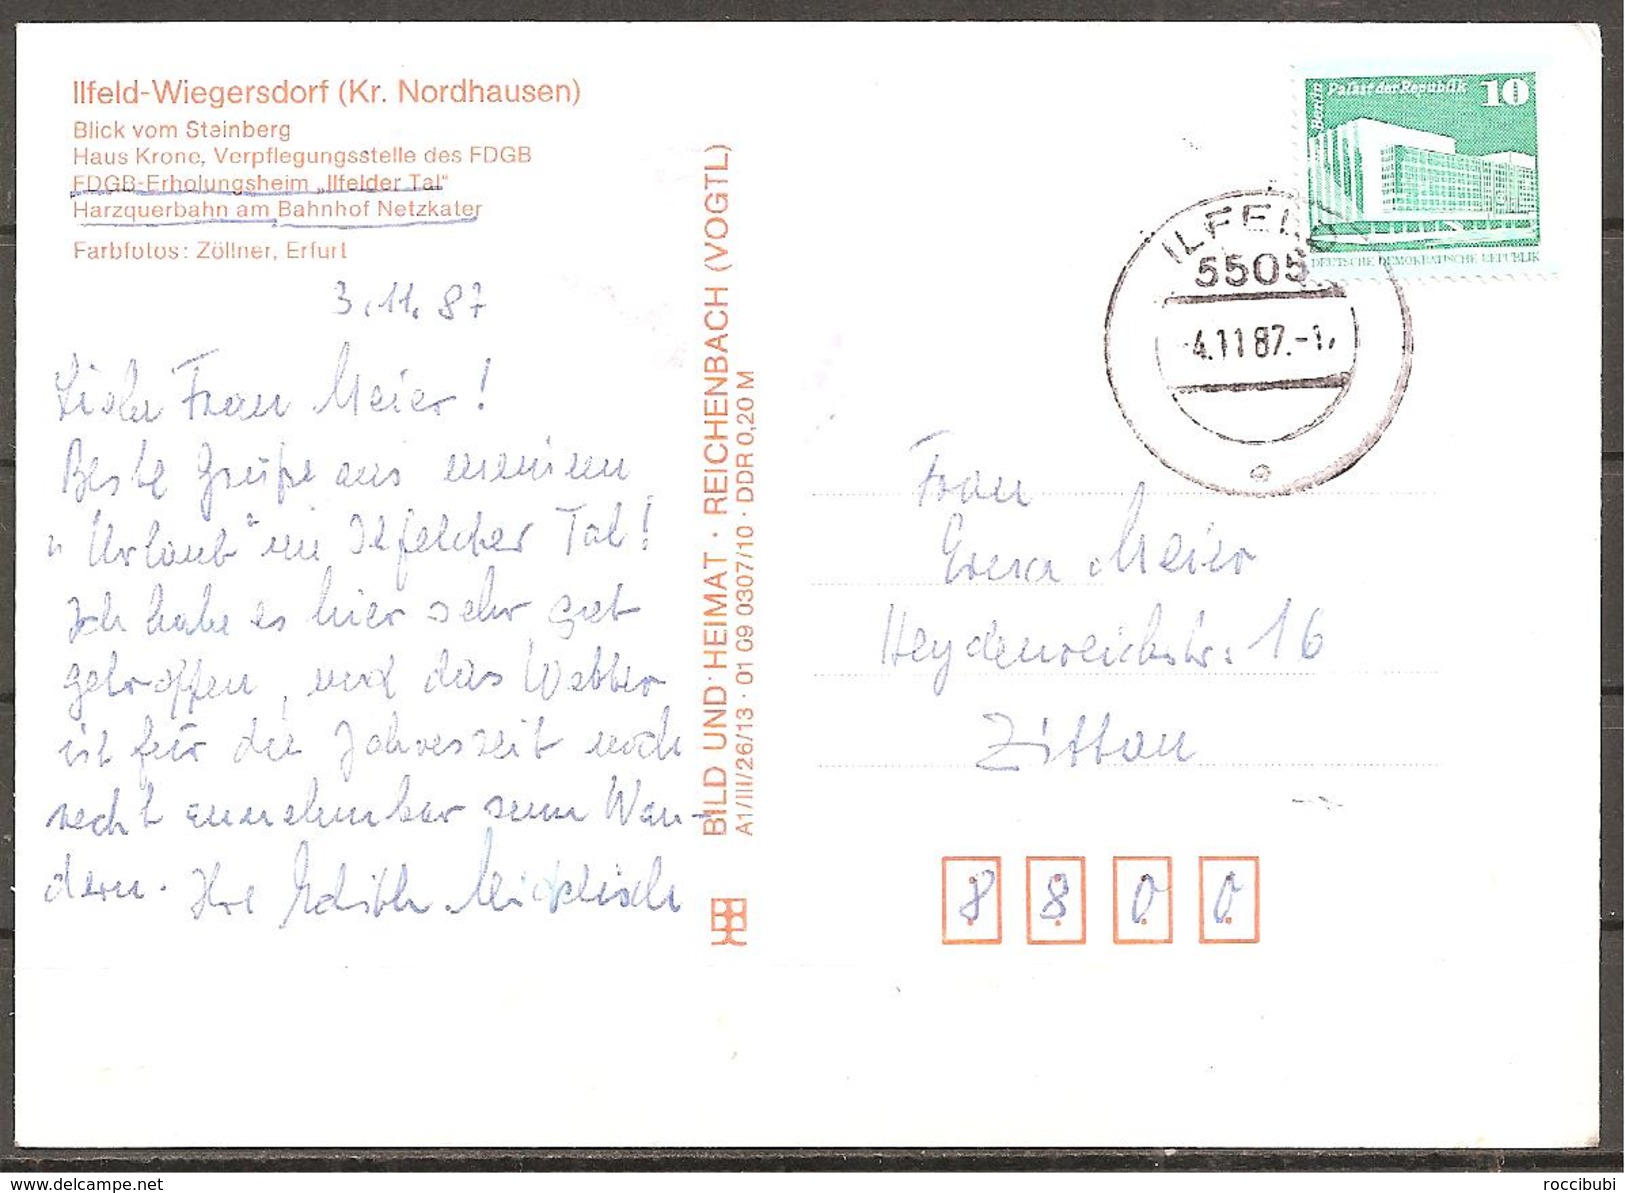 Ilfeld-Wiegersdorf (Kr. Nordhausen)
Blick vom Steinberg
Haus Krone, Verpflegungsstelle des FDGB
FDGB-Erholungsheim „Ilfelder Tal"
Harzquerbahn am Bahnhof Netzkater
Farbfotos: Zöllner, Erfurt
3.11.87
Liebe Frau Meier!
Beste Grüße aus meinem
"Urlaub" im Ilfelder Tal!
Ich habe es hier sehr gut
getroffen, und das Wetter
ist für die Jahreszeit noch
recht annehmbar zum Wan-
dern. Ihre Edith
BILD UND HEIMAT · REICHENBACH (VOGTL)
A1/III/26/13 · 01 09 0307/10 · DDR 0,20 M
Berlin Palast der Republik 10
DEUTSCHE DEMOKRATISCHE REPUBLIK
ILFELD
5505
-4.11.87.-1
Frau
Erna Meier
Heydenreichstr. 16
Zittau
8800
delcampe.net
roccibubi